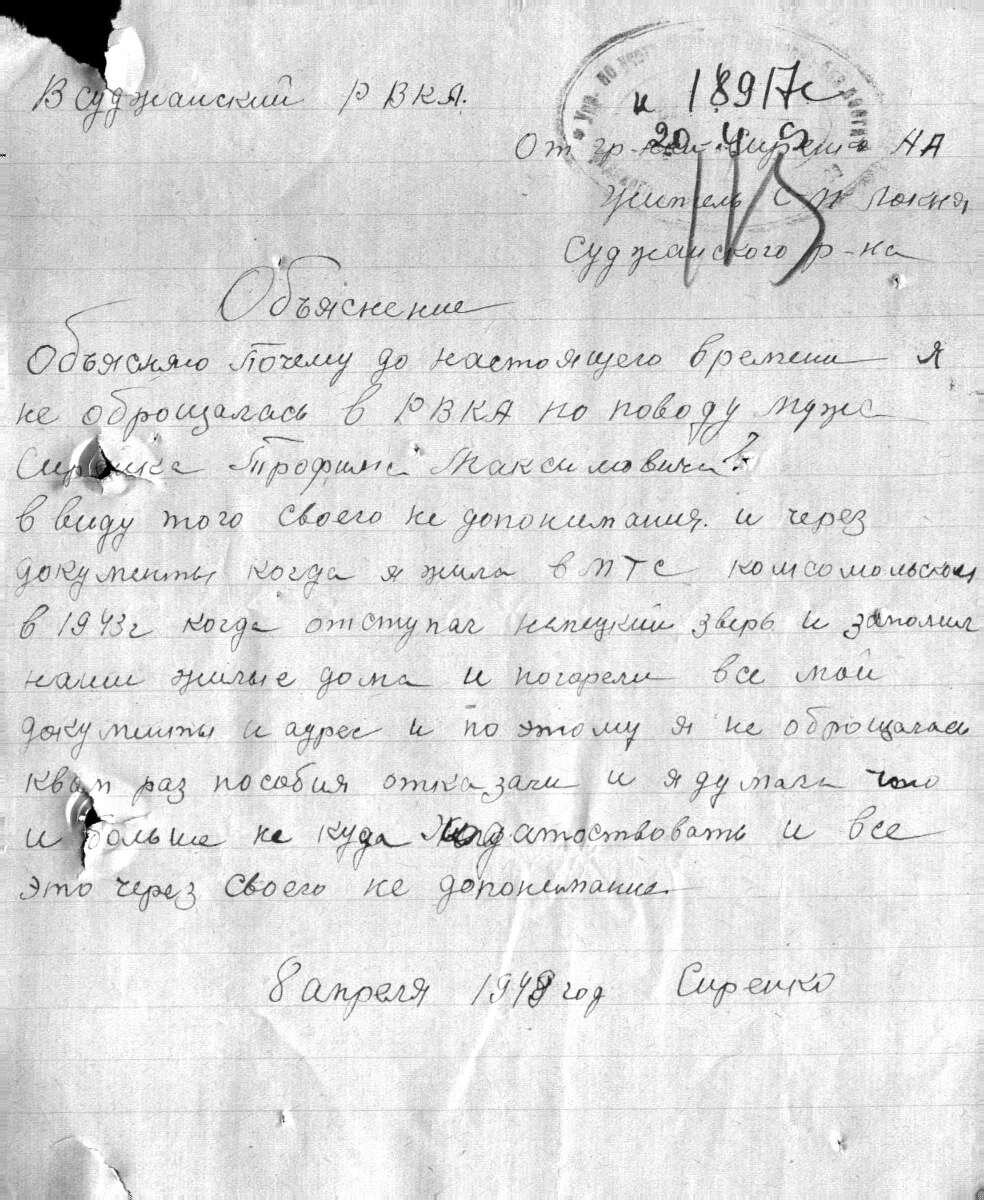 В Суджанский РВКА.
и 18917с
20 4
От гр-ки Сиренка НА
Житель с. п Локня
Суджанского р-на
Объяснение
Объясняю Почему до настоящего времени я
не оброщалась в РВКА по поводу мужа
Сиренка Трофима Максимовича
в виду того своего не допонимания. и через
документы когда я жила в МТС комсомольской
в 1943г когда отступал немецкий зверь и заполил
наши жилые дома и погорели все мои
документы и адрес и по этому я не оброщалась
раз пособия отказали и я думала что
и больше не куда ходатоствовать и все
это через своего не допонимание.
8 апреля 1948 год Сиренко